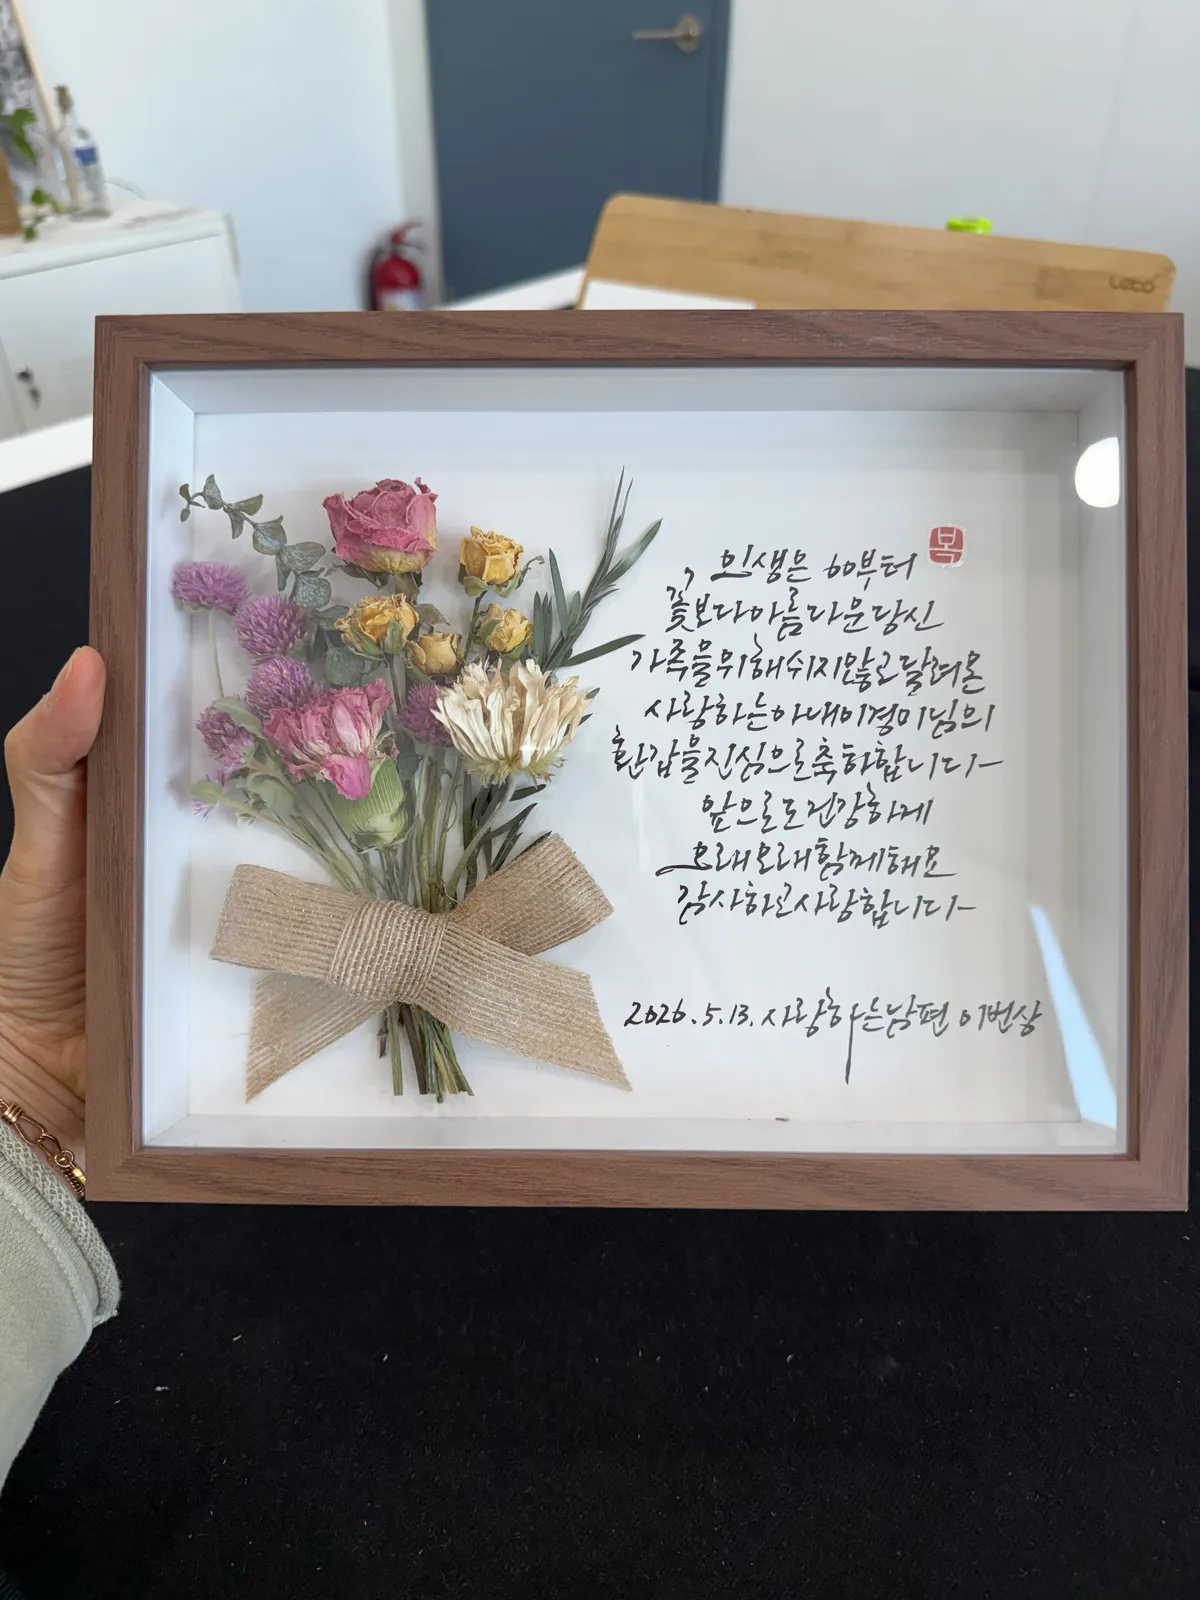 ueco
복
인생은 60부터
꽃보다아름다운당신
가족을위해쉬지않고달려온
사랑하는아내이경미님의
환갑을진심으로축하합니다
앞으로도건강하게
오래오래함께해요
감사하고사랑합니다
2026.5.13. 사랑하는남편 이번상